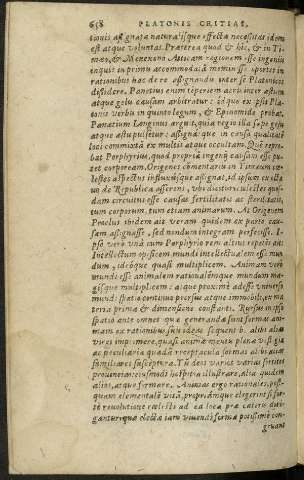 658 PLATONIS CRITIAS,
tionis assignata natura: ipsique effecta necessitas idem
est atque voluntas. Præterea quod & hic, & in Ti-
mæo, & Menexeno Atticam regionem esse ingeniis
inquit in primis accommodatā meminisse oportet in
rationibus hac de re assignandis inter se Platonicis
dissidere. Panetius enim temperiem aeris inter æstum
atque gelu causam arbitratur: idque ex ipsis Pla-
tonis verbis in quinto legum, & Epinomide probat.
Panætium Longinus arguit, quia regio illa sæpe gelu
atque æstu pulsetur: assignatque in causa qualitatē
loci commixtā ex multis atque occultam. Quē repro-
bat Porphyrius, quod propria ingenij causam esse pu-
tet corpoream. Origenes commentariis in Timæum cæ-
lestes aspectus influxusque assignat, id ipsum ex octa
uo de Republica asserens, ubi dicitur cælestes quos-
dam circuitus esse causas fertilitatis ac sterilitatis,
tum corporum, tum etiam animarum. At Origenem
Proclus ibidem ait veram quidem ex parte cau-
sam assignasse, sed nondum integram perfecisse. I-
pse vero unà cum Porphyrio rem altius repetit ait
Intellectum opificem mundi intellectualem esse mun-
dum, ideoque quasi multiplicem. Animam verò
mundi esse animalem rationalēmque mundum ma-
gisque multiplicem: atque proximè adesse vniverso
mundi spatia continuo prorsus atque immobili, ex ma
teria prima & dimensione constante. Rursus in ipso
spatio ante omnes quæ generanda sunt formas ani-
mam ex rationibus suis ideas sequentib. alibi alias
vires imprimere, quasi animæ mentu plena vestigia
ac peculiaria quædā receptacula formas alibi aliās
familiares susceptura. Tū deos varios varias sortitos
prouincias: eiusmodi hospitia illustrare, alia quidem
alios, atque firmare. Animas ergo rationales, post-
quam elementalē vitā, propriāmque elegerint, sor-
te revolutione cælesti ad ea loca præ cæteris diri-
gantur: quæ electæ iam vivendi formæ potissimè con-
gruant